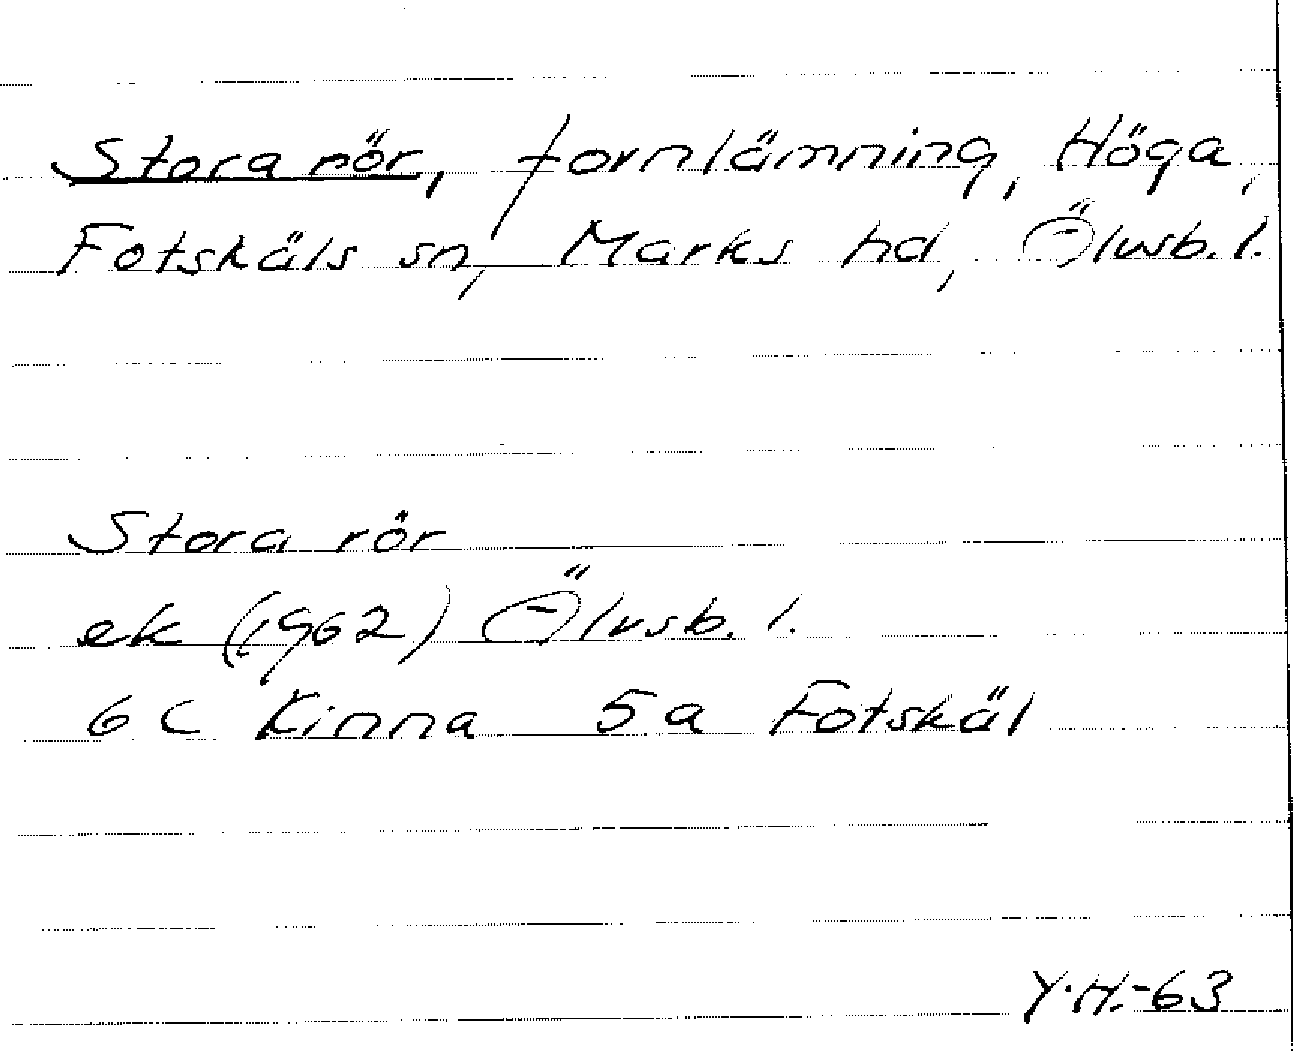 Stora rör, fornlämning, Höga,
Fotskäls sn, Marks hd, Älvsb. l.
Stora rör
ek (1962) Älvsb. l.
6 C Kinna 5a Fotskäl
Y.H.-63